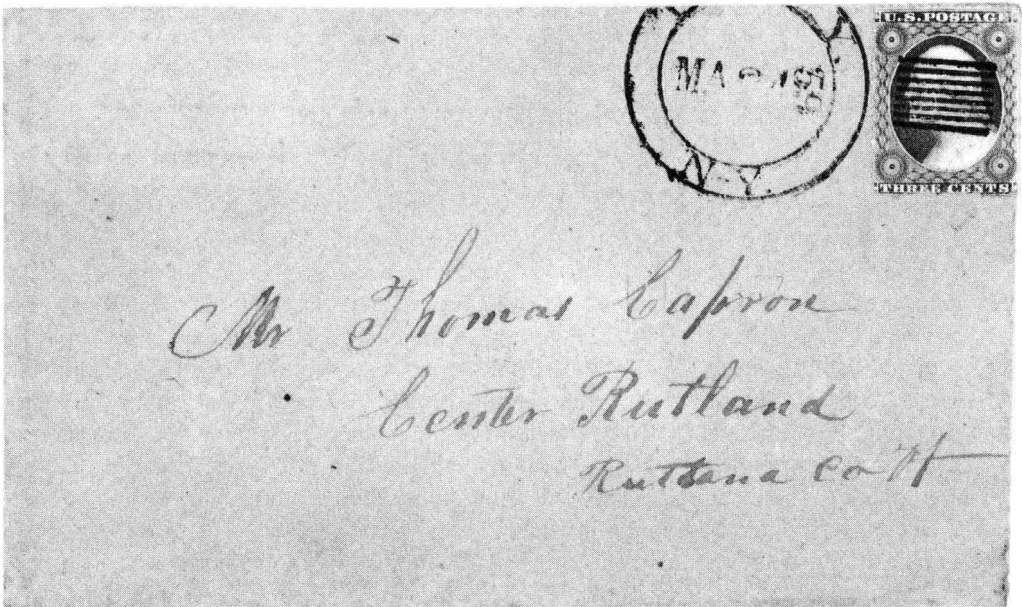 U.S. POSTAGE
THREE CENTS
MA
N-Y.
Mr Thomas Capron
Center Rutland
Rutland Co Vt